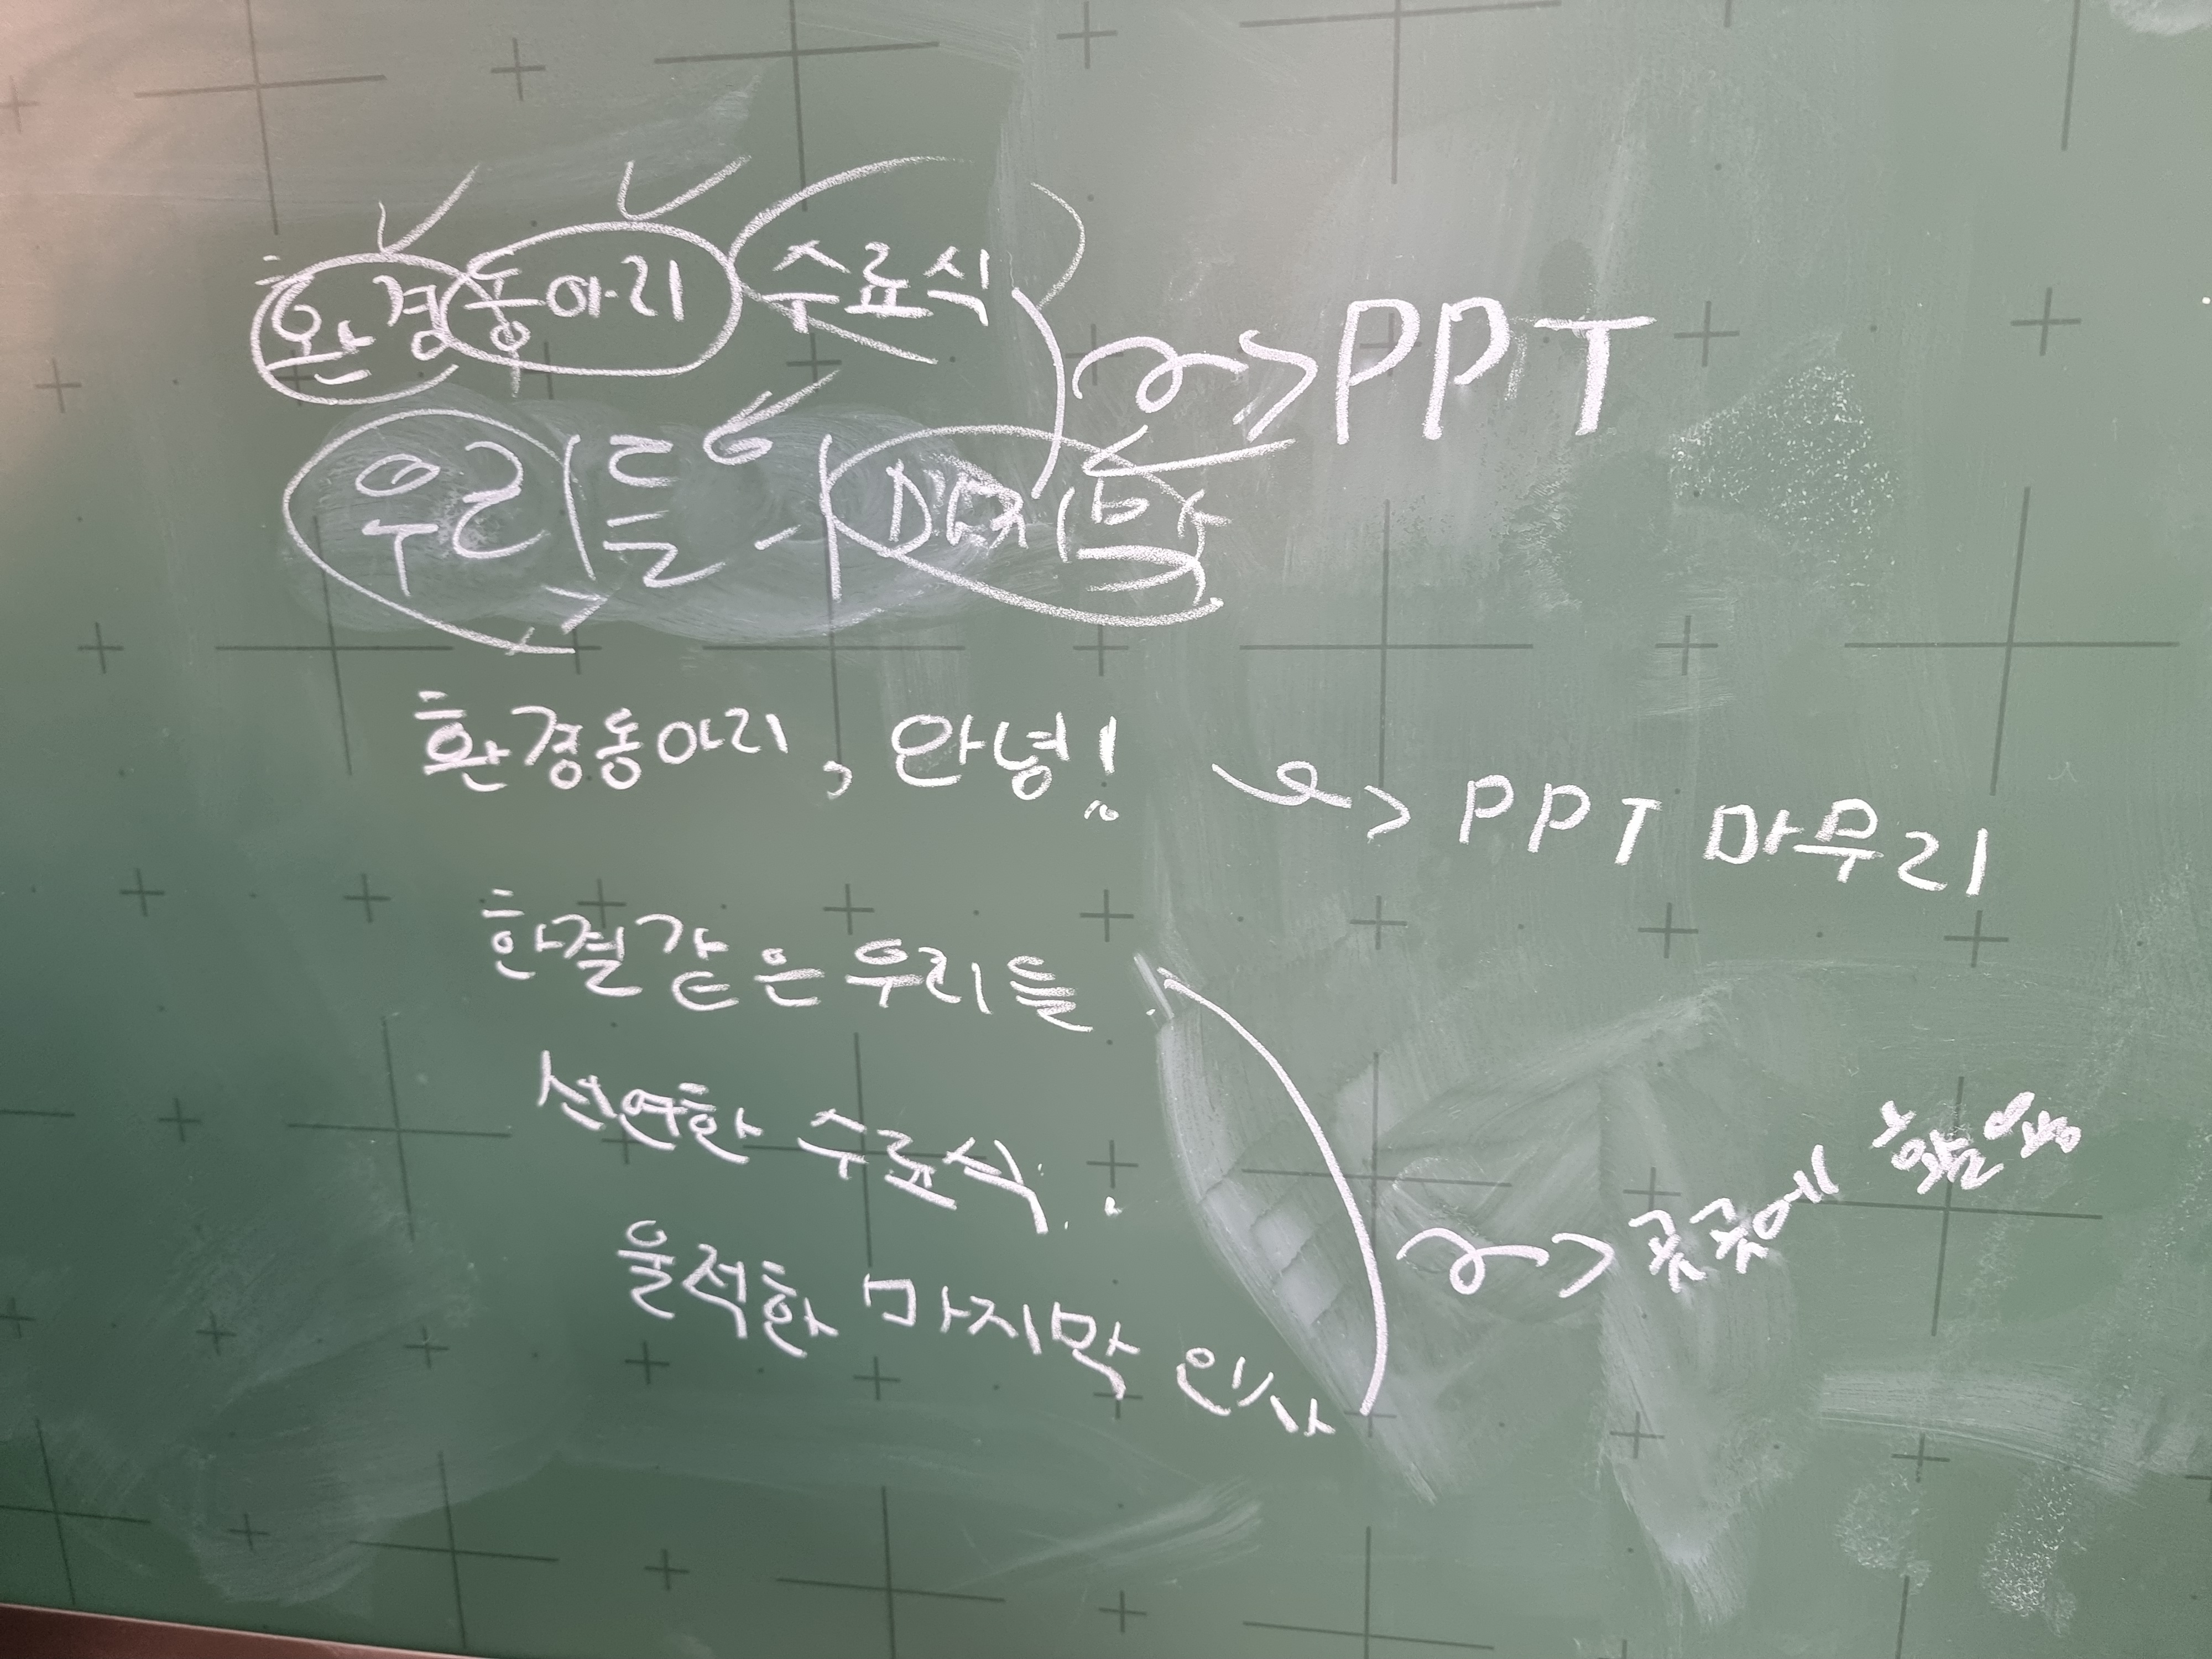 환경동아리 수료식
우리들의 마지막
~> PPT
환경동아리, 안녕! ~> PPT 마무리
한결같은 우리들
선연한 수료식
울적한 마지막 인사
~> 곳곳에 활용